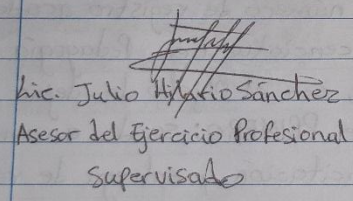 Lic. Julio Hilario Sánchez
Asesor del Ejercicio Profesional
Supervisado